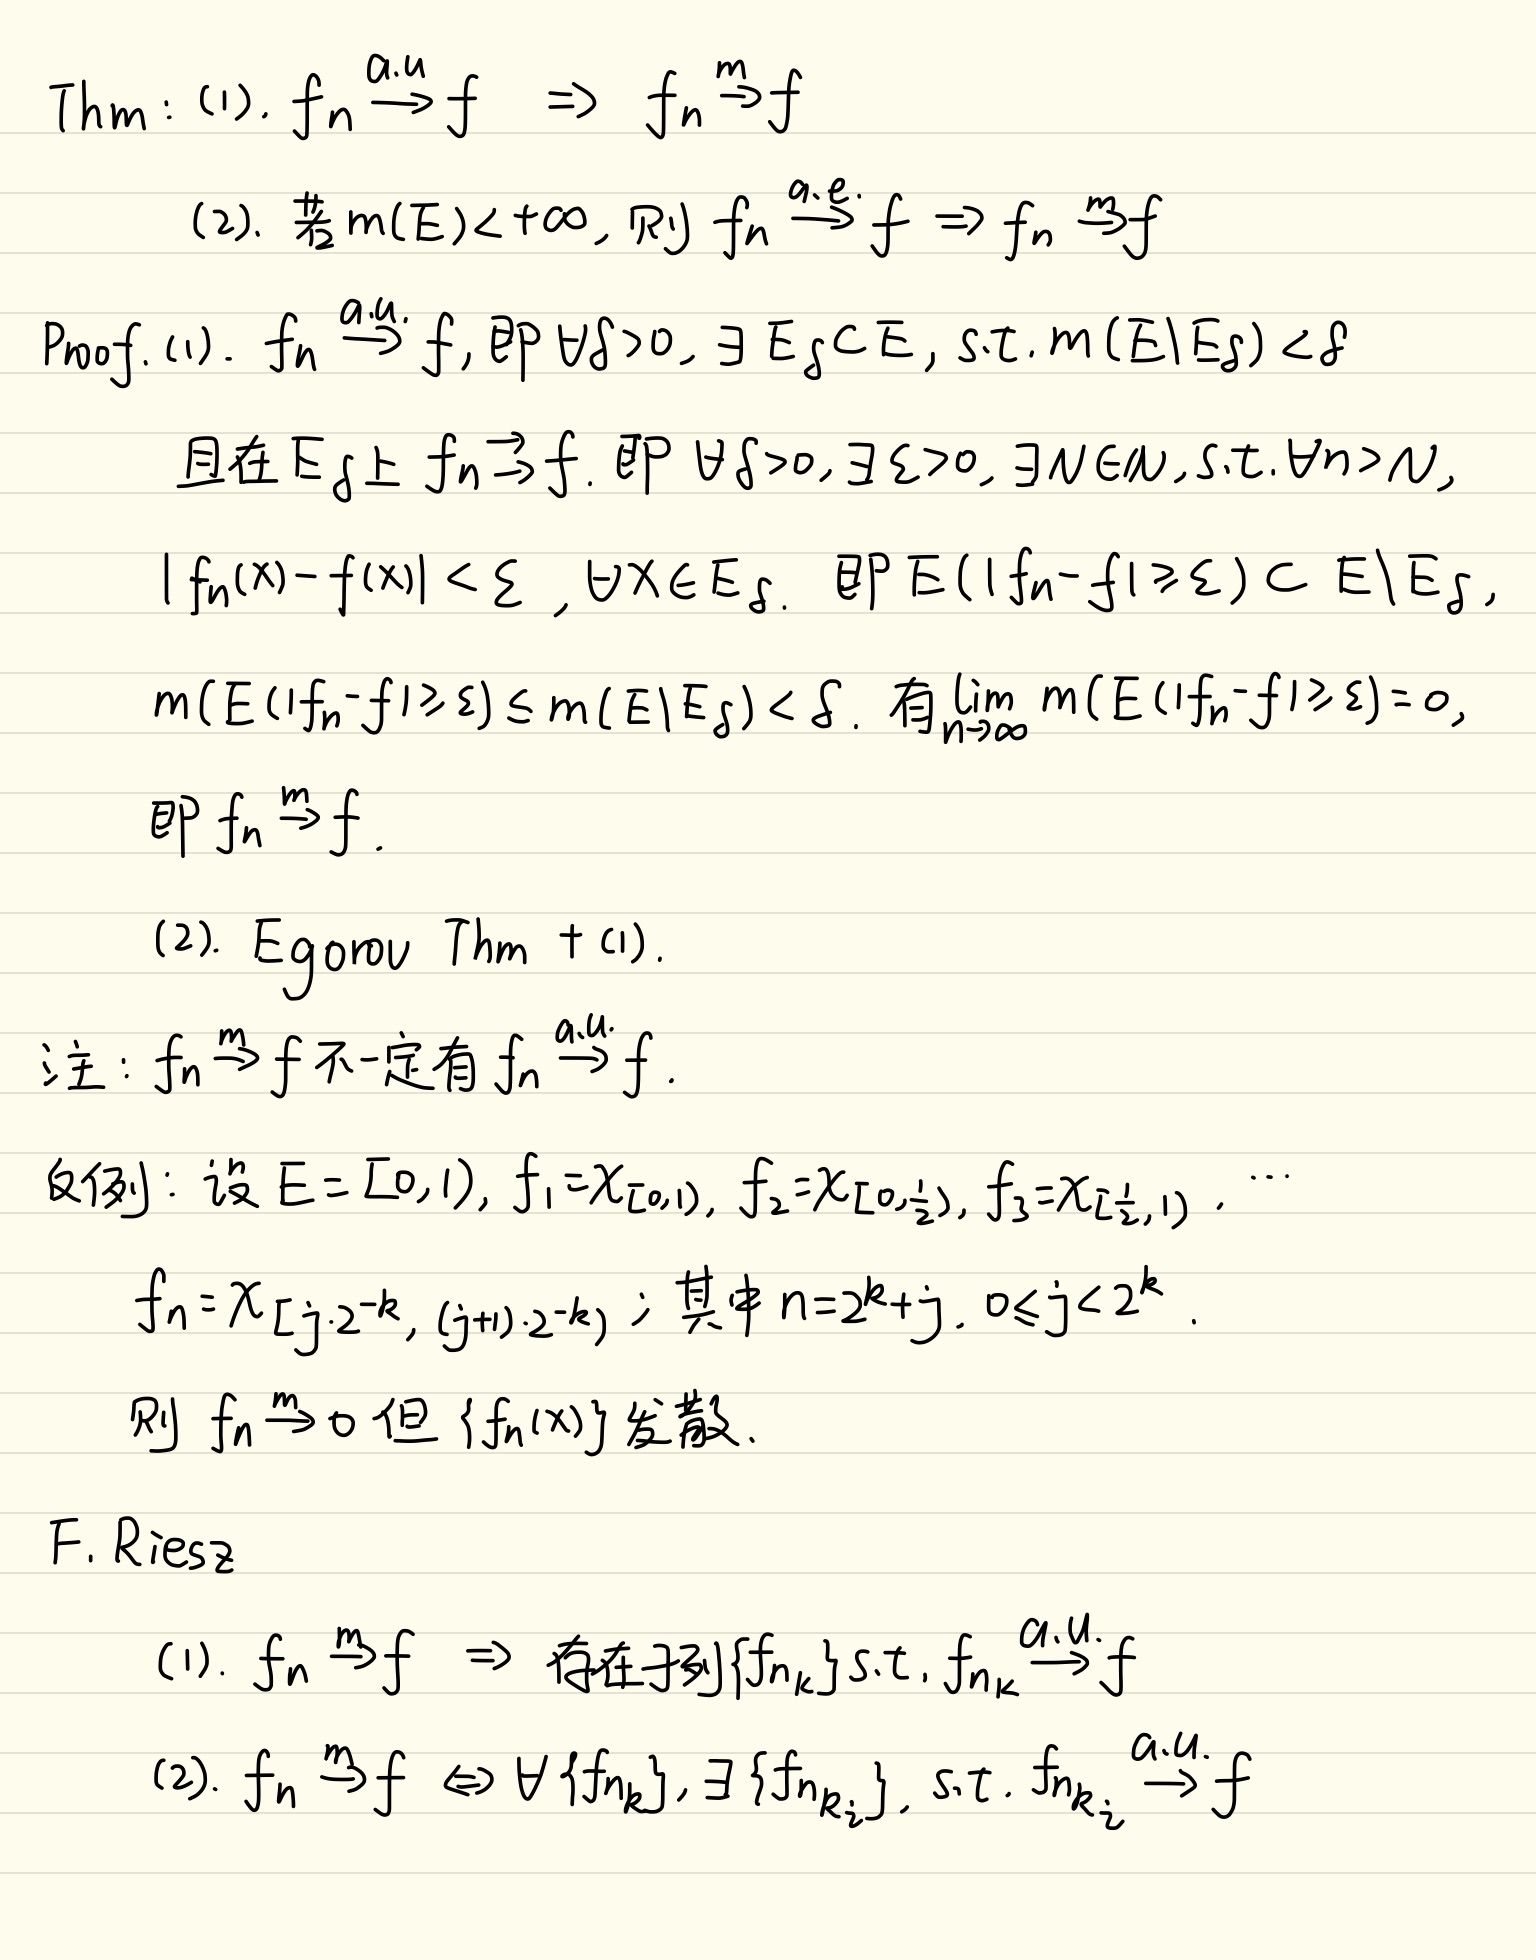 Thm: (1). fₙ —a.u→ f ⇒ fₙ —m→ f
(2). 若 m(E)<+∞, 则 fₙ —a.e.→ f ⇒ fₙ —m→ f
Proof. (1). fₙ —a.u.→ f, 即 ∀δ>0, ∃ E_δ⊂E, s.t. m(E\E_δ)<δ
且在 E_δ 上 fₙ ⇉ f. 即 ∀δ>0, ∃ε>0, ∃N∈ℕ, s.t. ∀n>N,
|fₙ(x)-f(x)|<ε, ∀x∈E_δ. 即 E(|fₙ-f|≥ε) ⊂ E\E_δ,
m(E(|fₙ-f|≥ε) ≤ m(E\E_δ)<δ. 有 lim_{n→∞} m(E(|fₙ-f|≥ε)=0,
即 fₙ —m→ f.
(2). Egorov Thm + (1).
注: fₙ —m→ f 不一定有 fₙ —a.u.→ f.
反例: 设 E=[0,1), f₁=χ_{[0,1)}, f₂=χ_{[0,½)}, f₃=χ_{[½,1)}, ⋯
fₙ=χ_{[j·2^{-k}, (j+1)·2^{-k})}; 其中 n=2^k+j, 0≤j<2^k.
则 fₙ —m→ 0 但 {fₙ(x)} 发散.
F. Riesz
(1). fₙ —m→ f ⇒ 存在子列{f_{n_k}} s.t. f_{n_k} —a.u.→ f
(2). fₙ —m→ f ⇔ ∀{f_{n_k}}, ∃{f_{n_{k_i}}}, s.t. f_{n_{k_i}} —a.u.→ f